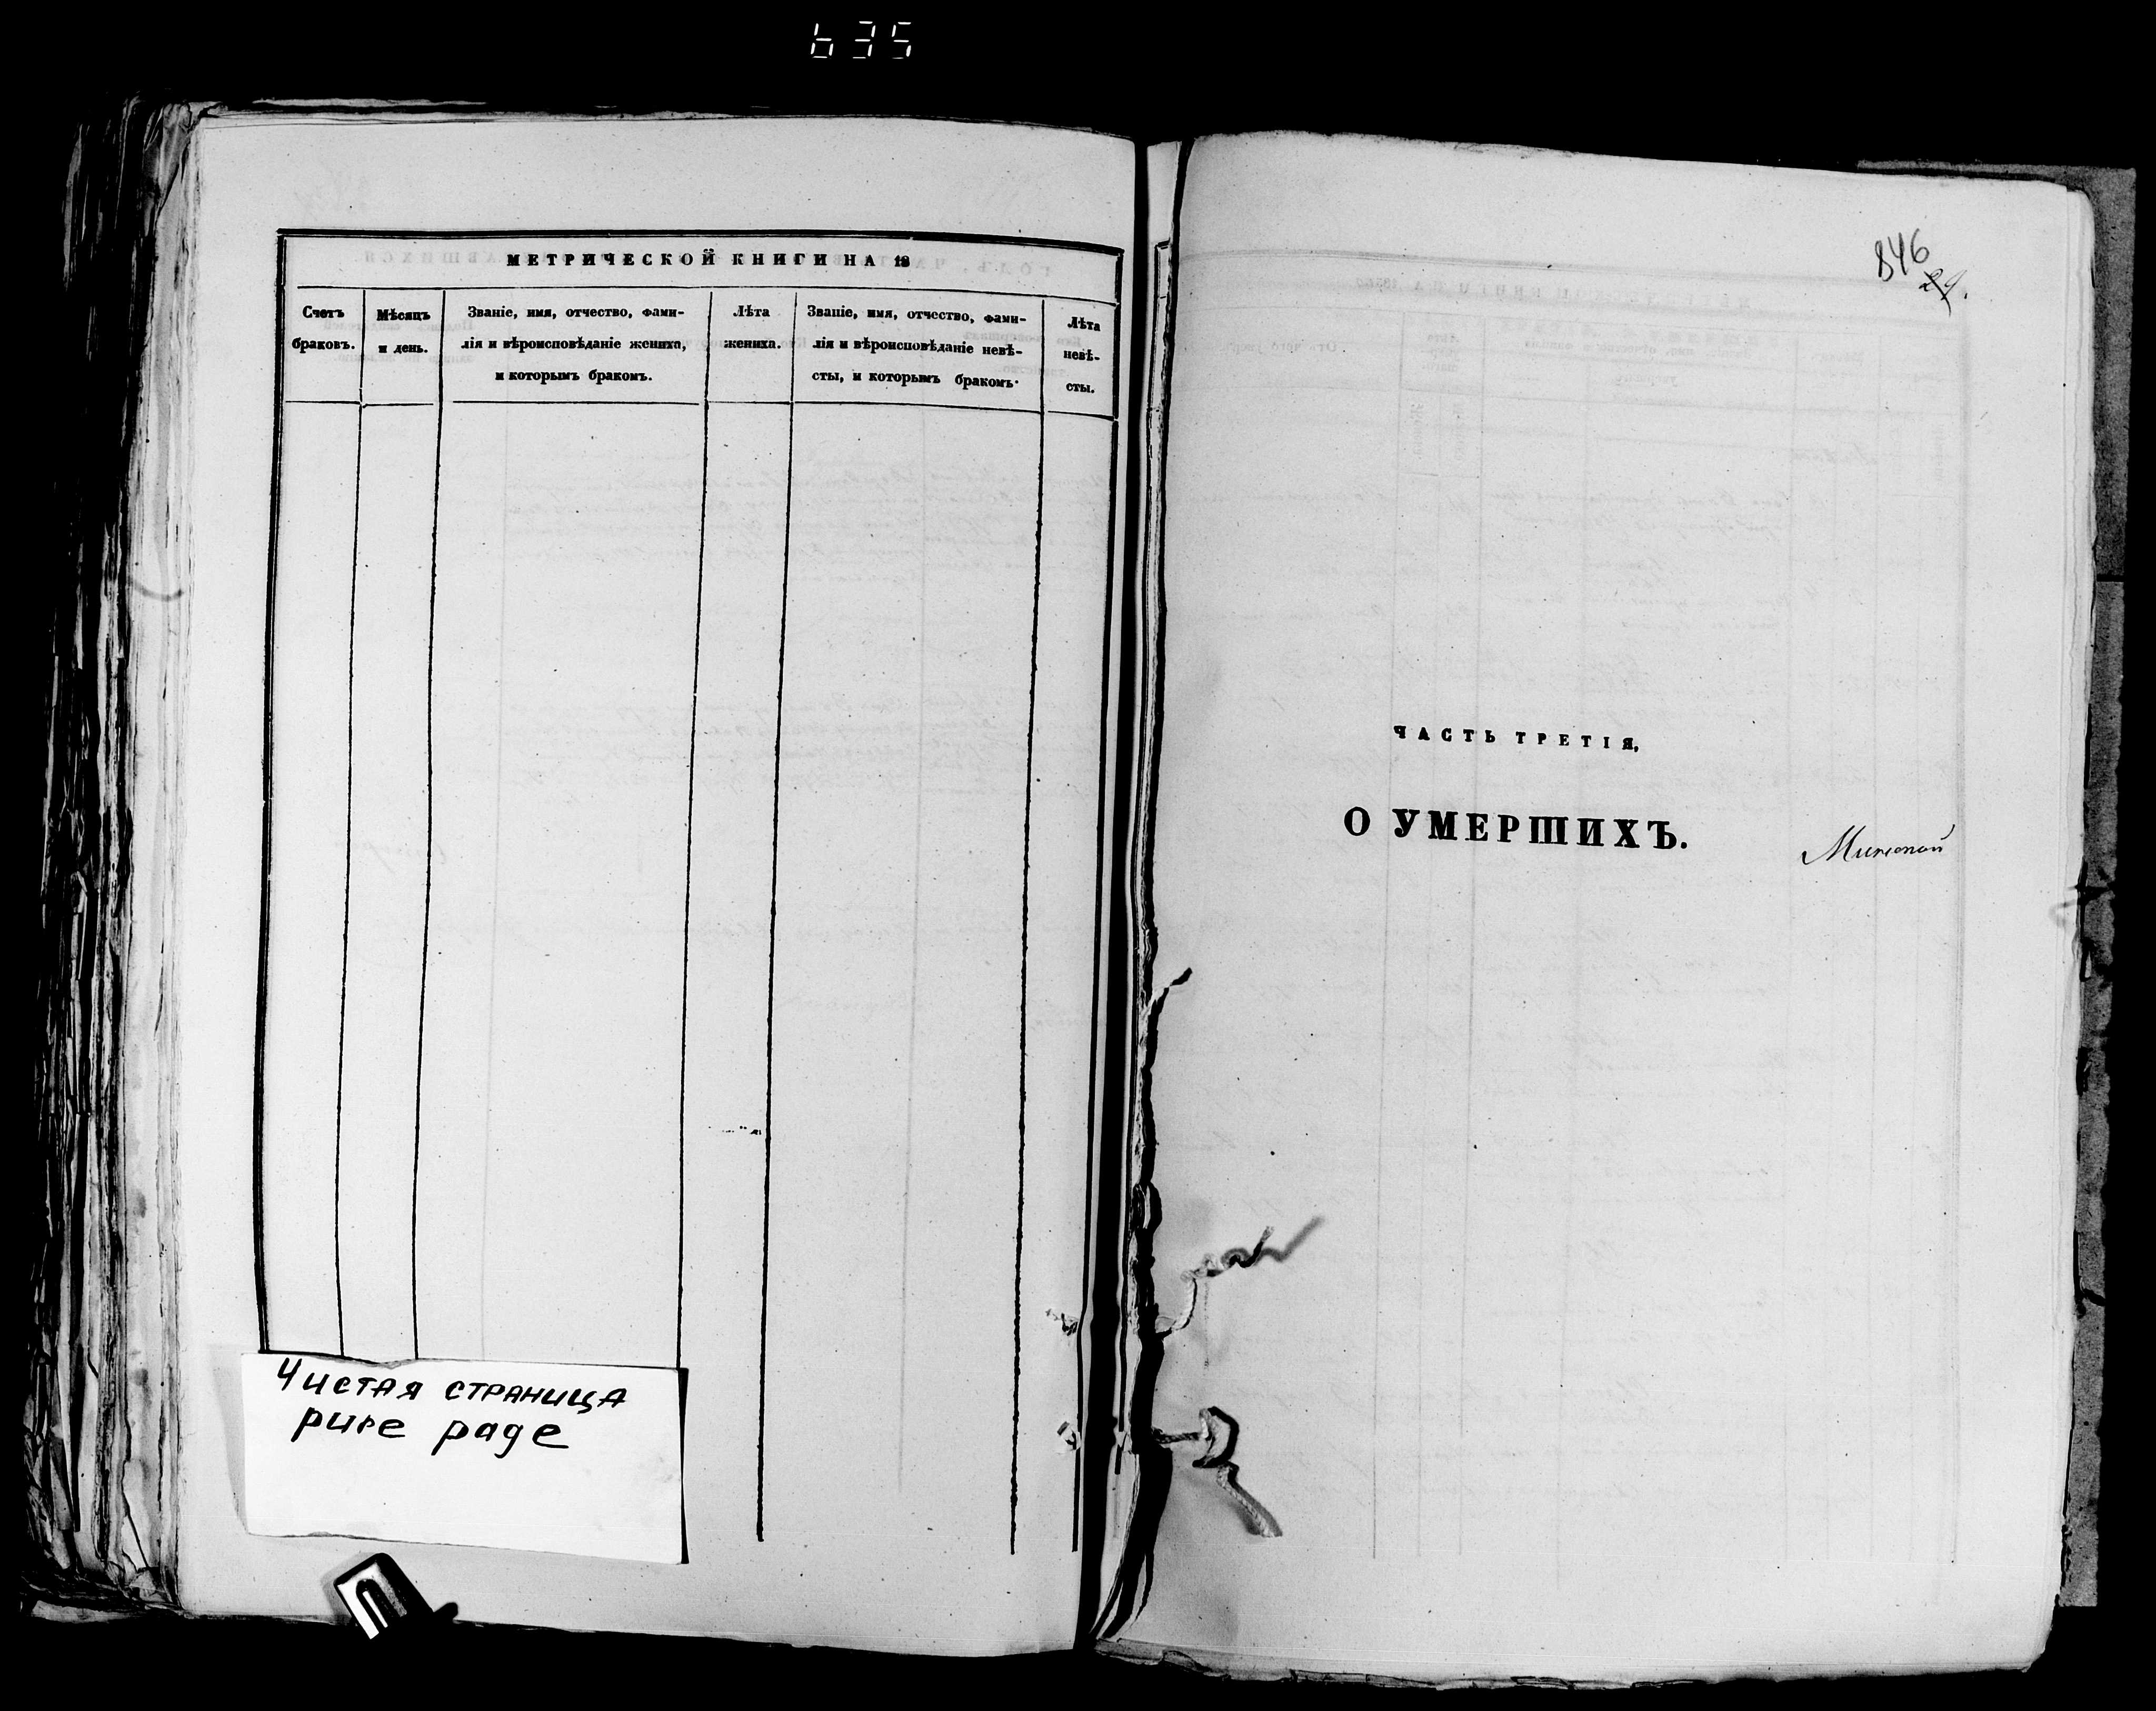 635
МЕТРИЧЕСКОЙ КНИГИ НА 18
Счетъ
браковъ.
Мѣсяцъ
и день.
Званіе, имя, отчество, фами-
лія и вѣроисповѣданіе жениха,
и которымъ бракомъ.
Лѣта
жениха.
Званіе, имя, отчество, фами-
лія и вѣроисповѣданіе невѣ-
сты, и которымъ бракомъ.
Лѣта
невѣ-
сты.
Чистая страница
pure page
846
ЧАСТЬ ТРЕТІЯ,
О УМЕРШИХЪ.